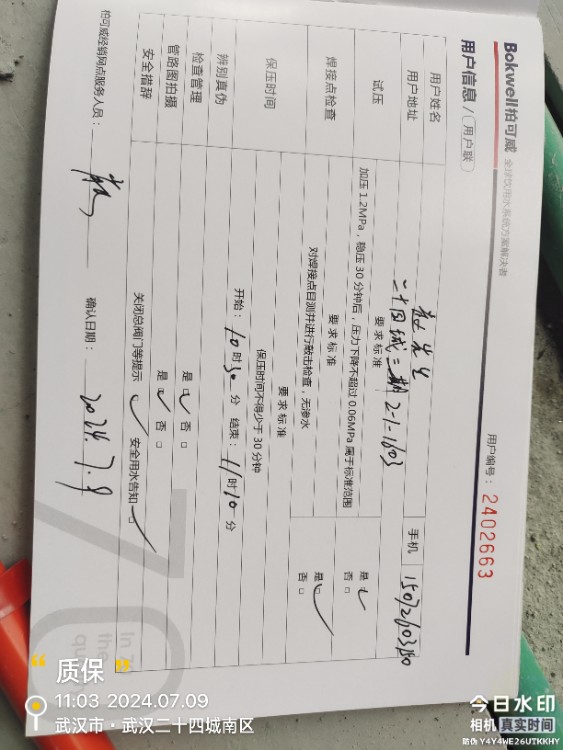 Bokwell柏可威 全球饮用水系统方案解决者
用户信息/(用户联) 用户编号：2402663
用户姓名
用户地址 二十四城三期21-1603 手机
试压 要求标准
加压1.2MPa，稳压30分钟后，压力下降不超过0.06MPa属于标准范围 是 否
焊接点检查 要求标准
对焊接点目测并进行敲击检查，无渗水 是 否
保压时间 要求标准
保压时间不得少于30分钟
开始：10时30分 结束：11时10分
辨别真伪
检查管理 是 否
管路图拍摄 是 否
安全措辞 关闭总阀门等提示 安全用水告知
柏可威经销网点服务人员： 确认日期：2024.7.9
70
In 7
the
qu
质保
11:03 2024.07.09
武汉市·武汉二十四城南区
今日水印
相机 真实时间
防伪 Y4Y4WE26UTKKHY